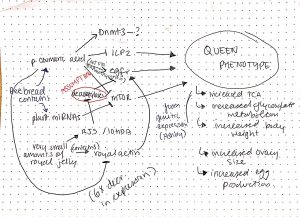 Dnmt3 - ?
p-coumaric acid
ILP2
egfr
QUEEN
PHENOTYPE
ASSUMPTION
mTOR
beebread
contains
plant miRNAs
RJS / 10HDA
very small
amounts of
royal jelly
(contains)
royalactin
(6x decr
in expression)
from
genetic
expression
(Ashby)
increased TCA
increased glyoxylate
metabolism
increased body
weight
increased ovary
size
increased egg
production